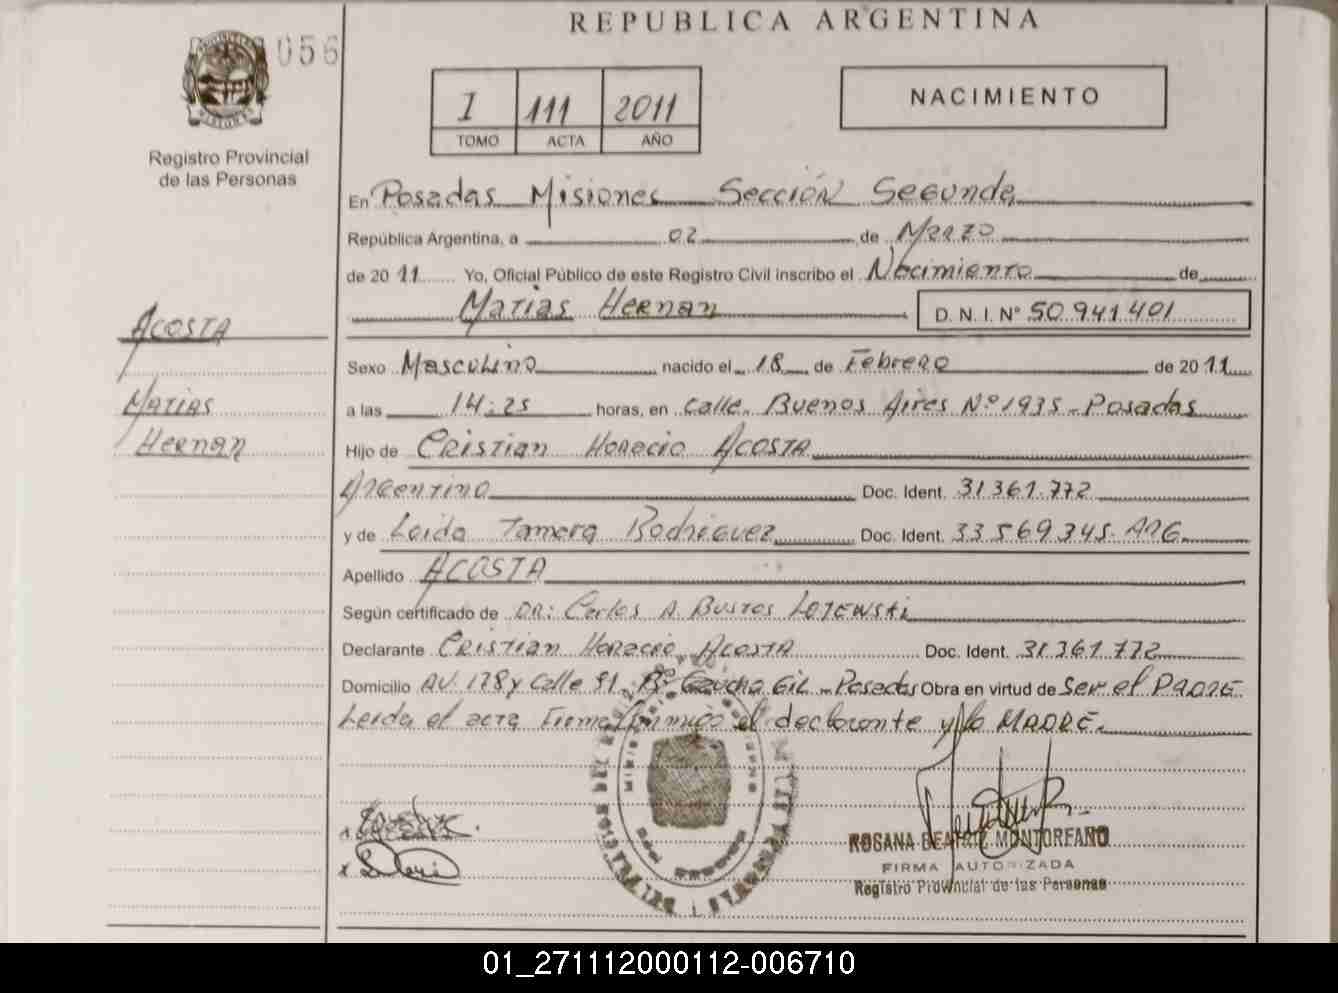 REPUBLICA ARGENTINA
056
MISIONES
Registro Provincial
de las Personas
I 111 2011
TOMO ACTA AÑO
NACIMIENTO
En Posadas Misiones Sección Segunda
República Argentina, a 02 de Marzo
de 2011 Yo, Oficial Público de este Registro Civil inscribo el Nacimiento de
Matias Hernan D. N. I. Nº 50.941.401
ACOSTA
Matias
Hernan
Sexo Masculino nacido el 18 de Febrero de 2011
a las 14:25 horas, en calle Buenos Aires Nº 1935 - Posadas
Hijo de Cristian Horacio ACOSTA
Argentino Doc. Ident. 31.361.772
y de Leida Tamara Rodriguez Doc. Ident. 33.569.345. ARG
Apellido ACOSTA
Según certificado de DR: Carlos A. Bustos
Declarante Cristian Horacio ACOSTA Doc. Ident. 31.361.772
Domicilio AV. 178 y Calle 91. Bº Gaucho Gil - Posadas Obra en virtud de Ser el PADRE.
Leida el acta Firma conmigo el declarante y la MADRE.
ROSANA BEATRIZ MONTORFANO
FIRMA AUTORIZADA
Registro Provincial de las Personas
01_271112000112-006710